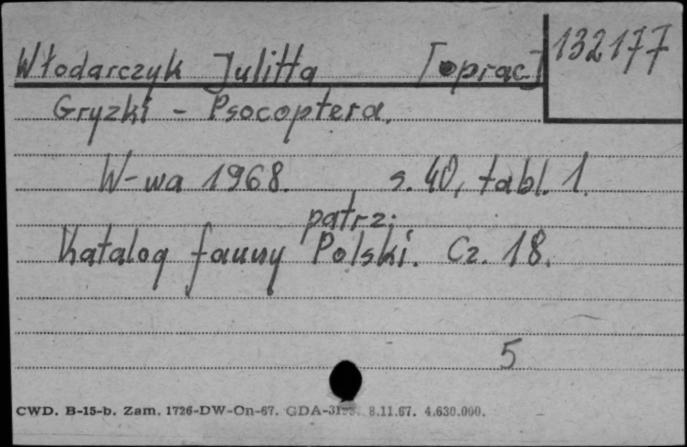 132177
Włodarczyk Julitta [oprac]
Gryzki - Psocoptera.
W-wa 1968. s. 40, tabl. 1.
patrz:
Katalog fauny Polski. Cz. 18.
5
CWD. B-15-b. Zam. 1726-DW-On-67. 8.11.67. 4.630.000.